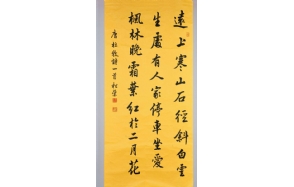 遠上寒山石徑斜白雲
生處有人家停車坐愛
楓林晚霜葉紅於二月花
唐杜牧詩一首